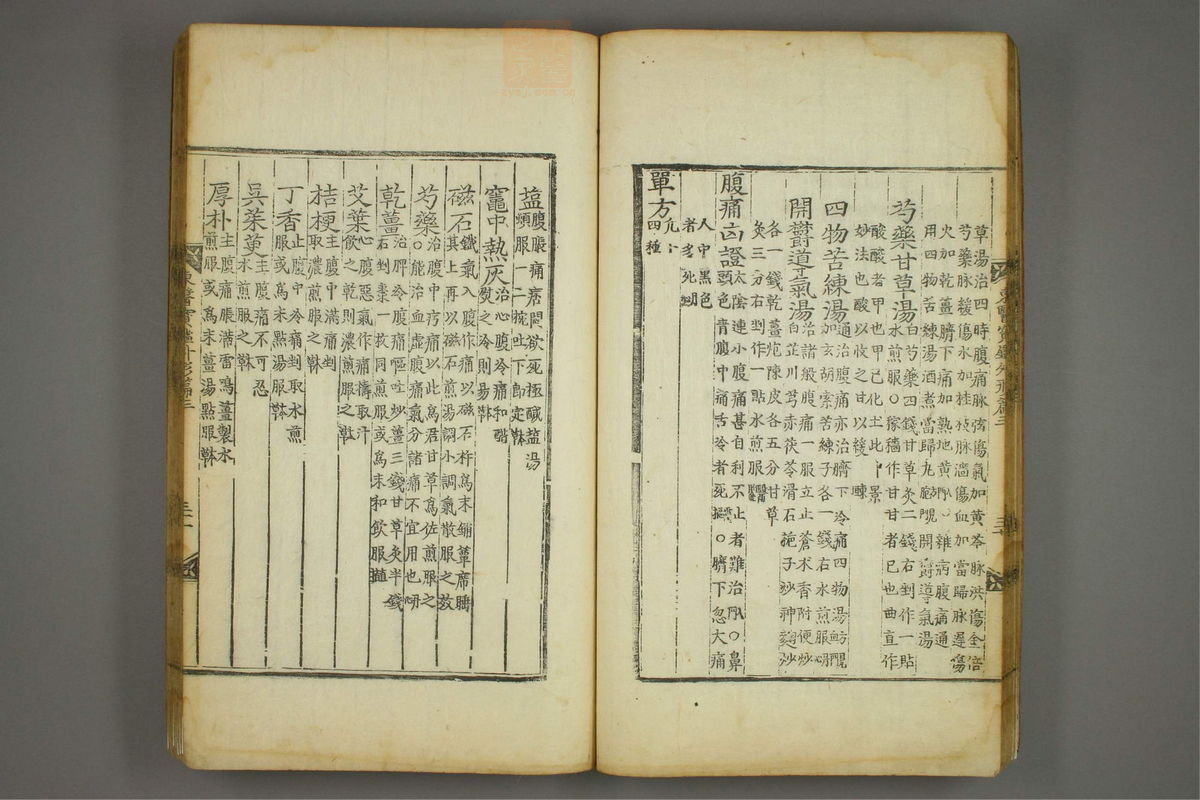 草湯治四時腹痛脉弦傷氣加黃芩脉洪傷金倍
芍藥脉緩傷水加桂枝脉濇傷血加當歸脉遲傷
火加乾薑臍下痛加熟地黃 ○雜病腹痛通
用四物苦練湯酒煮當歸丸 開鬱導氣湯
芍藥甘草湯 白芍藥四錢甘草灸二錢右剉作一貼
水煎服○稼穡作甘甘者己也曲直作
酸酸者甲也甲己化土此仲景
妙法也酸以收之甘以緩
四物苦練湯 通治腹痛亦治臍下冷痛四物湯
加玄胡索苦練子各一錢右水煎服
開鬱導氣湯 治諸般腹痛一服立止蒼朮香附便炒
白芷川芎赤茯苓滑石梔子炒神麴炒
各一錢乾薑炮陳皮各五分甘草
灸三分右剉作一點水煎服
腹痛凶證 太陰連小腹痛甚自利不止者難治 ○鼻
頭色青腹中痛舌冷者死 ○臍下忽大痛
人中黑色
者多死
單方 凡十
四種
塩 腹脹痛痞悶欲死極醎塩湯
頻服一二椀吐下卽定
竈中熱灰 治心腹冷痛和醋
熨之冷則易
磁石 鐵氣入腹作痛以磁石杵爲末鋪簟席臥
其上再以磁石煎湯調小調氣散服之
芍藥 治腹中㽲痛以此爲君甘草爲佐煎服之
○能治血虛腹痛氣分諸痛不宜用也
乾薑 治脾冷腹痛嘔吐炒薑三錢甘草灸半錢
右剉棗一枚同煎服或爲末和飮服
艾葉 心腹惡氣作痛擣取汁
飮之乾則濃煎服之
桔梗 主腹中滿痛剉
取濃煎服之
丁香 止腹中冷痛剉取水煎
服或爲末點湯服
吳茱萸 主腹痛不可忍
水煎服之
厚朴 主腹痛脹滿雷鳴薑製水
煎服或爲末薑湯點服